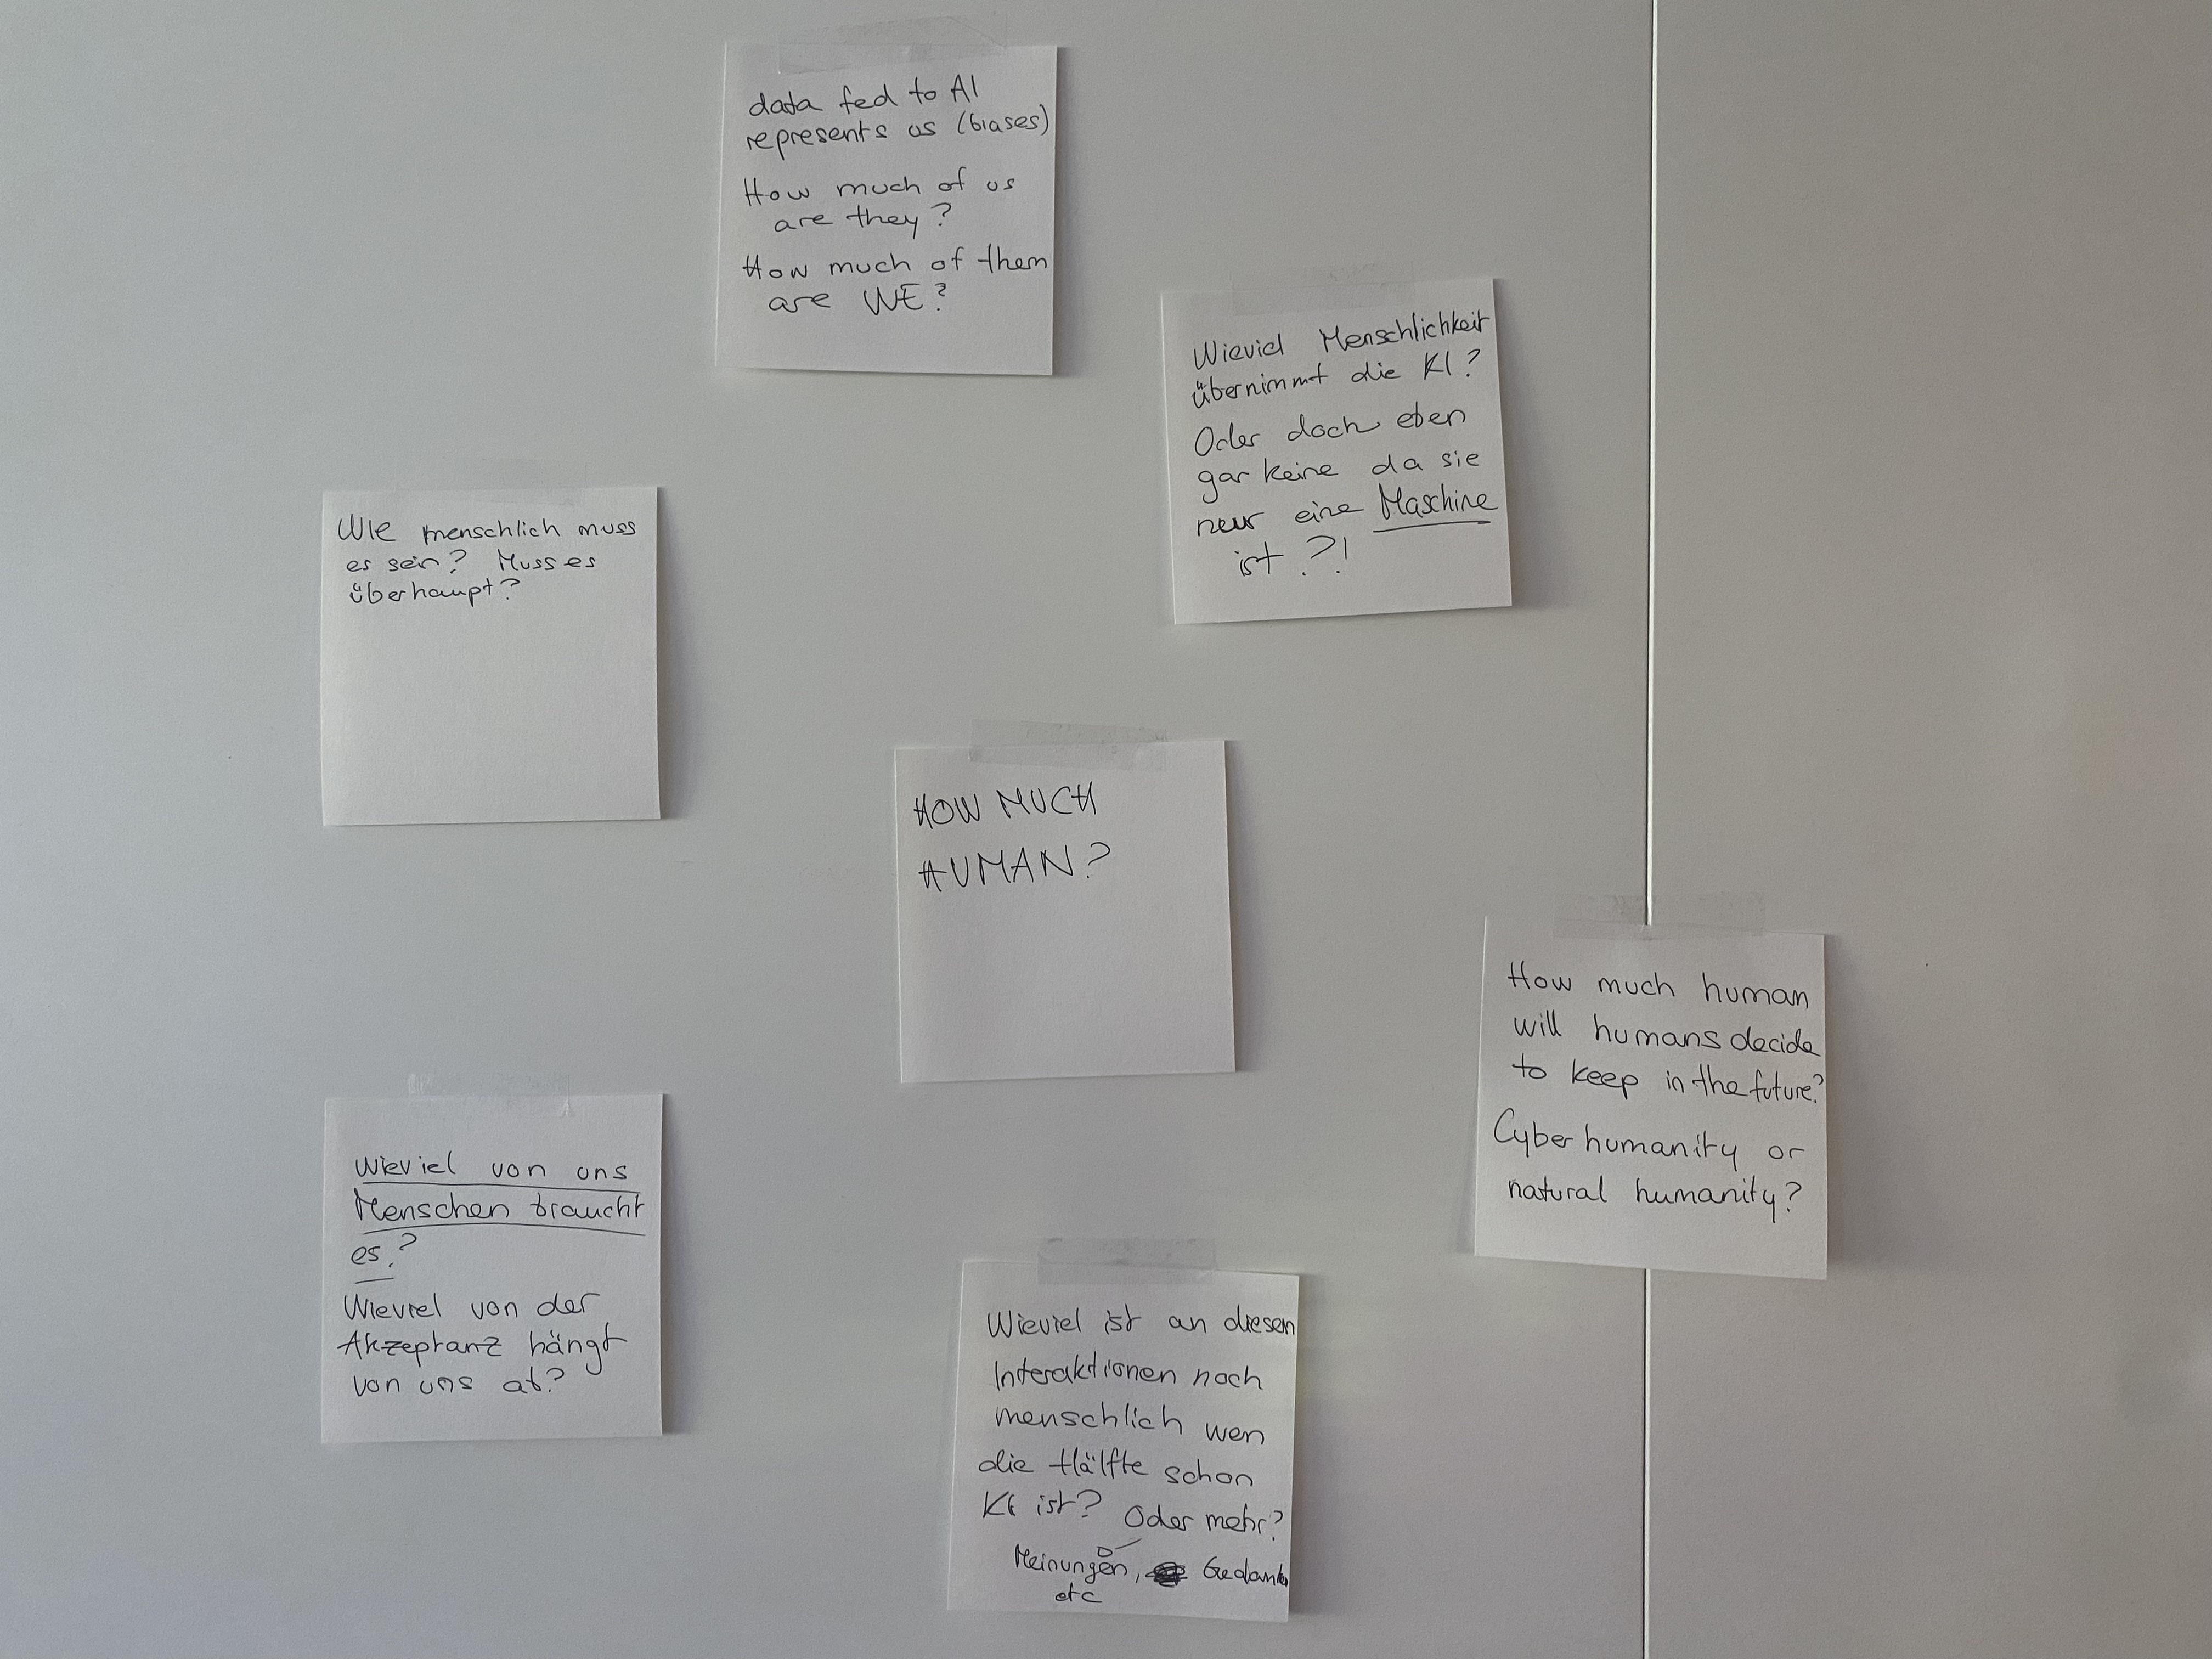 data fed to AI
represents us (biases)
How much of us
are they?
How much of them
are WE?
Wieviel Menschlichkeit
übernimmt die KI?
Oder doch eben
gar keine da sie
nur eine Maschine
ist?!
Wie menschlich muss
es sein? Muss es
überhaupt?
HOW MUCH
HUMAN?
How much human
will humans decide
to keep in the future?
Cyber humanity or
natural humanity?
Wieviel von uns
Menschen braucht
es?
Wieviel von der
Akzeptanz hängt
von uns ab?
Wieviel ist an diesen
Interaktionen noch
menschlich wen
die Hälfte schon
KI ist? Oder mehr?
Meinungen, Gedanken
etc